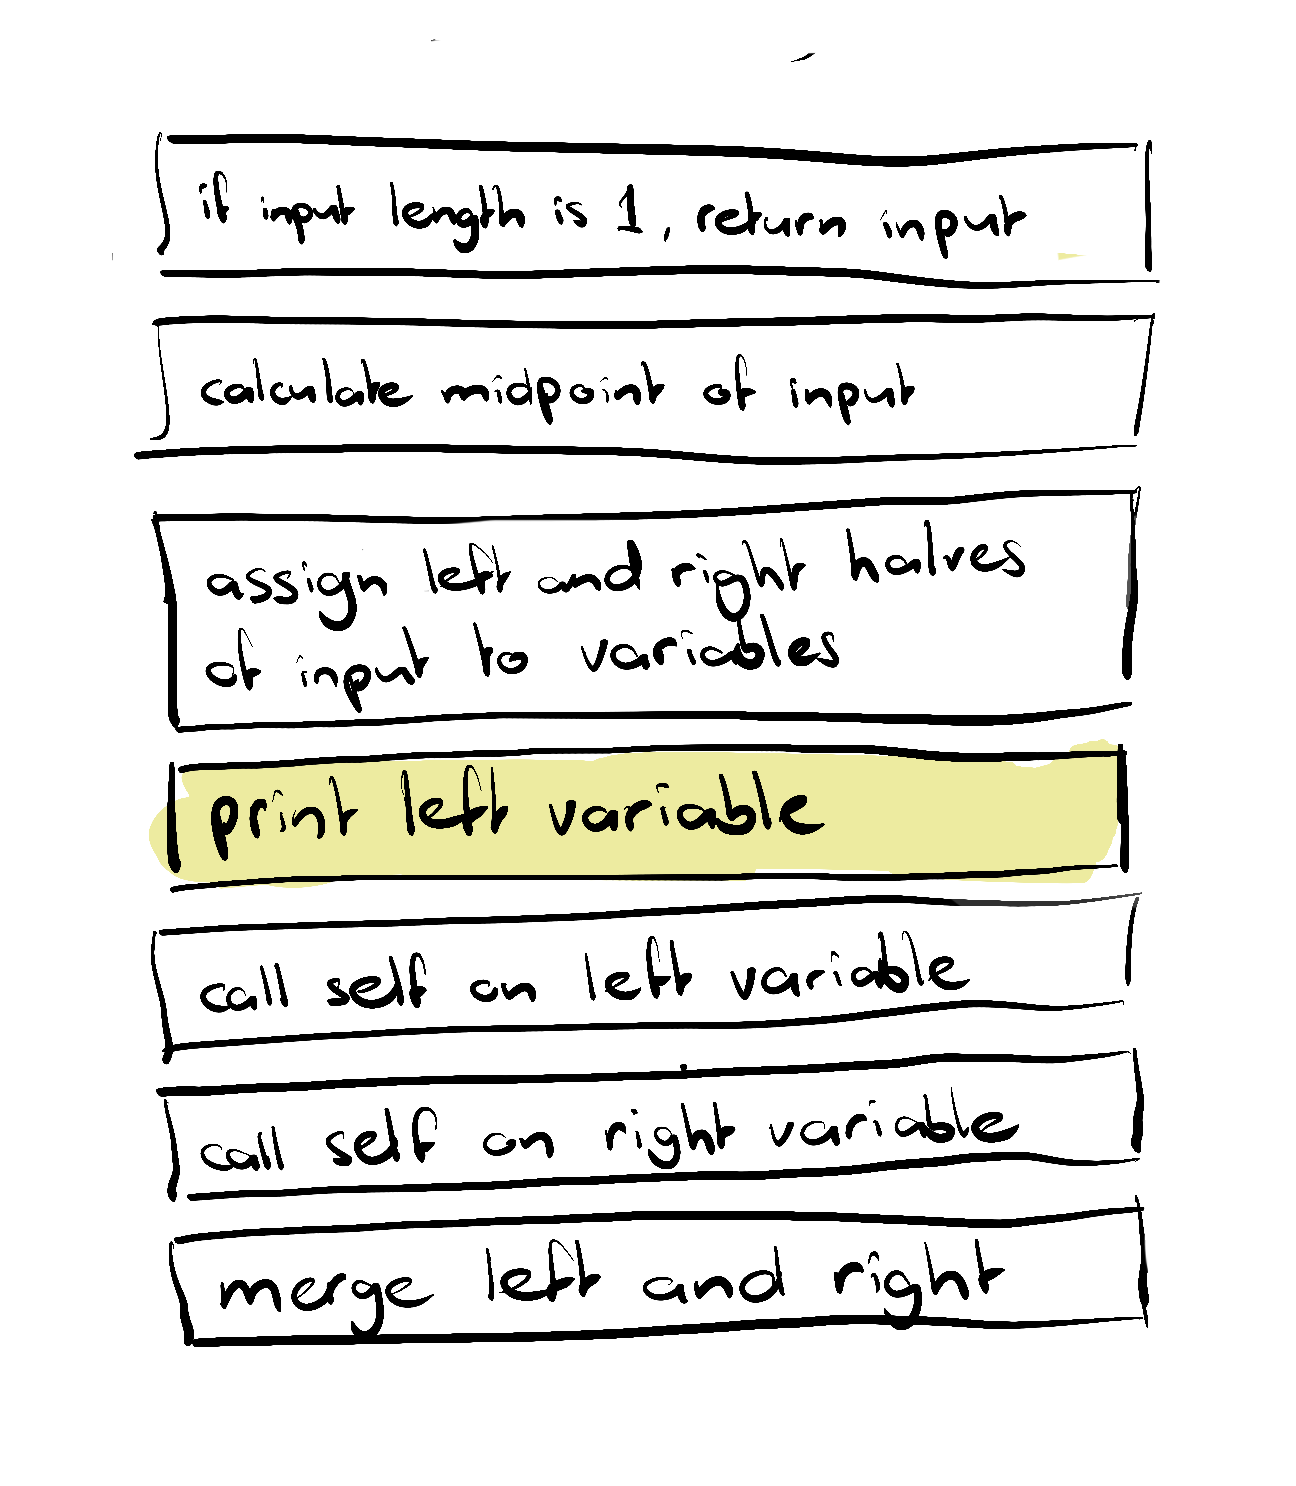 if input length is 1, return input
calculate midpoint of input
assign left and right halves
of input to variables
print left variable
call self on left variable
call self on right variable
merge left and right